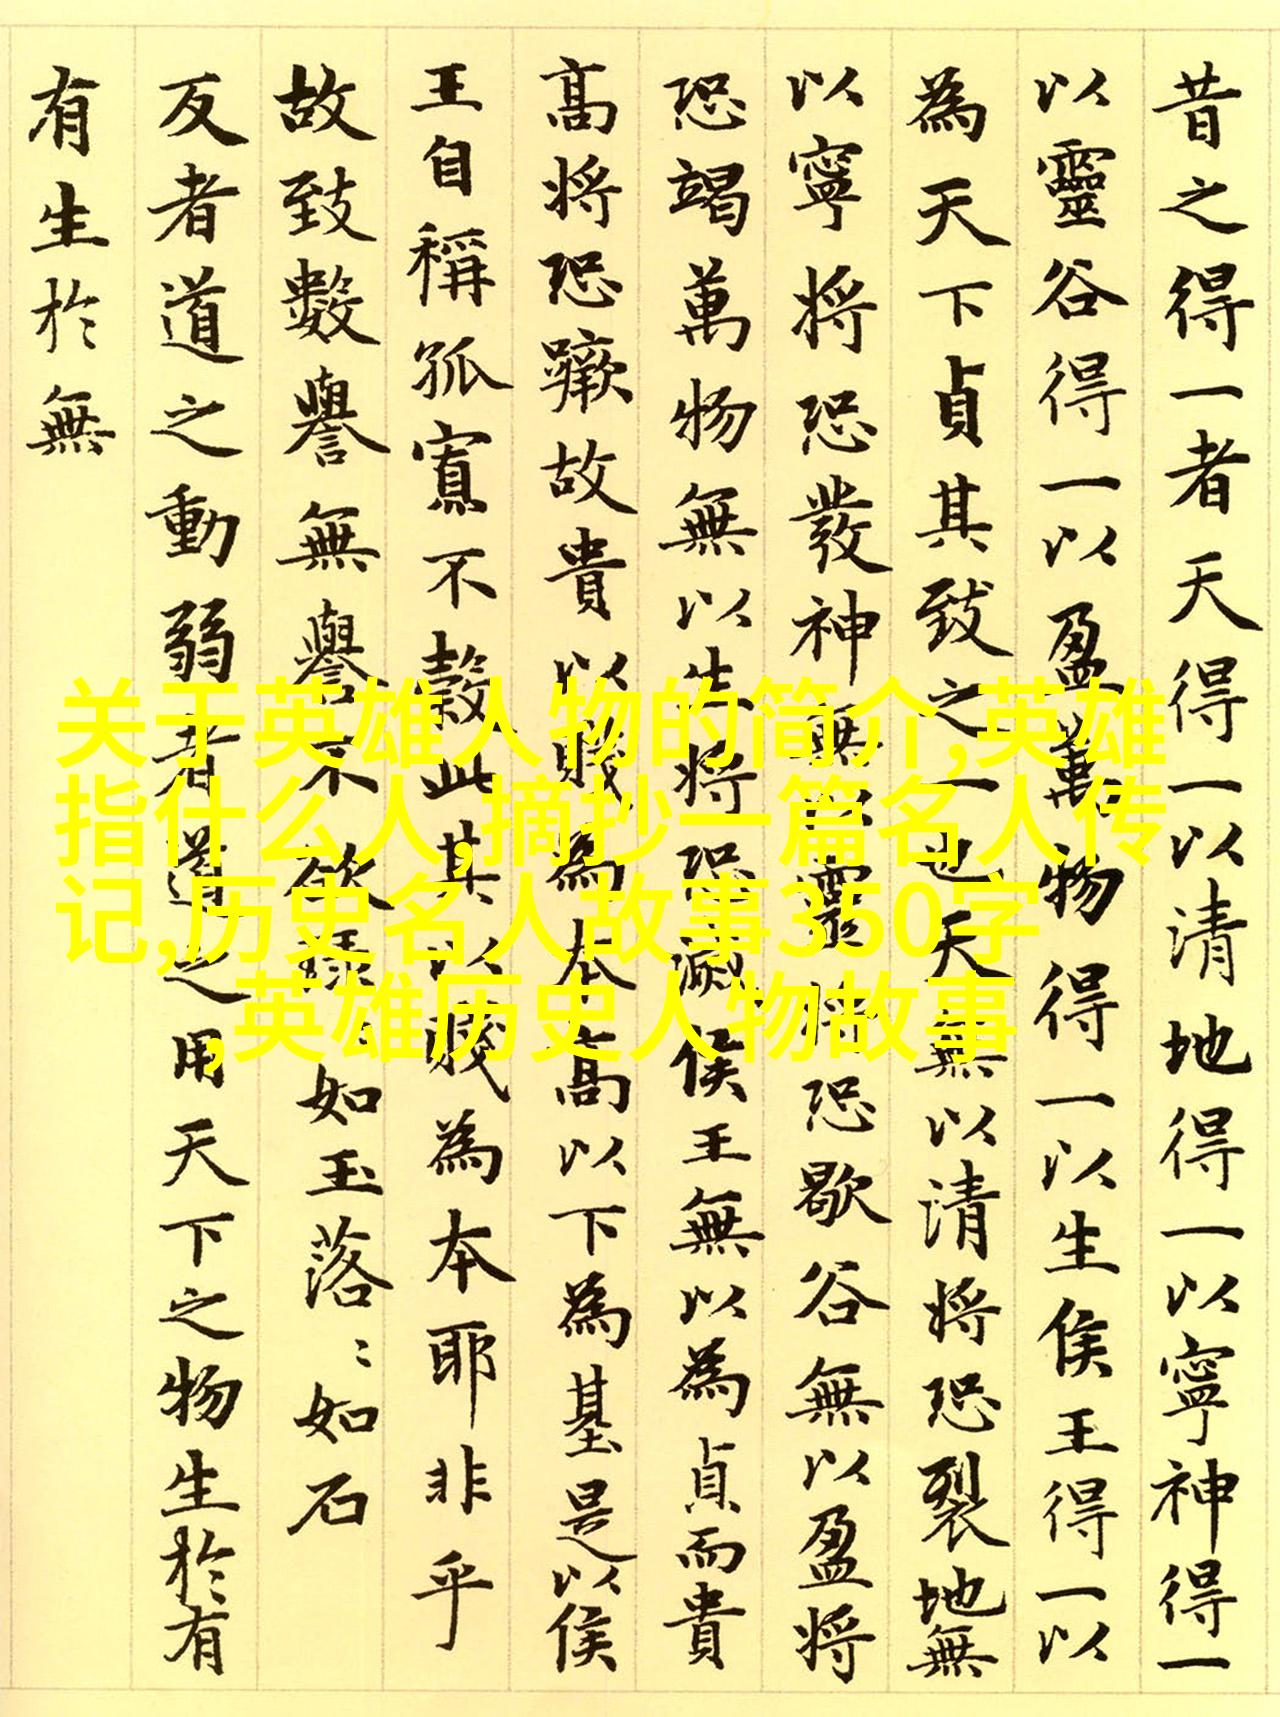 昔之得一者天得一以清地得一以寧神得一
以靈谷得一以盈萬物得一以生侯王得一以
為天下貞其致之一也天無以清將恐裂地無
以寧將恐發神無以靈將恐歇谷無以盈將
恐竭萬物無以生將恐滅侯王無以為貞而貴
高將恐蹶故貴以賤為本高以下為基是以侯
王自稱孤寡不穀此其以賤為本耶非乎
故致數譽無譽不欲琭〻如玉落〻如石
反者道之動弱者道之用天下之物生於有
有生於無
关于英雄人物的简介,英雄
指什么人,摘抄一篇名人传
记,历史名人故事350字
,英雄历史人物故事